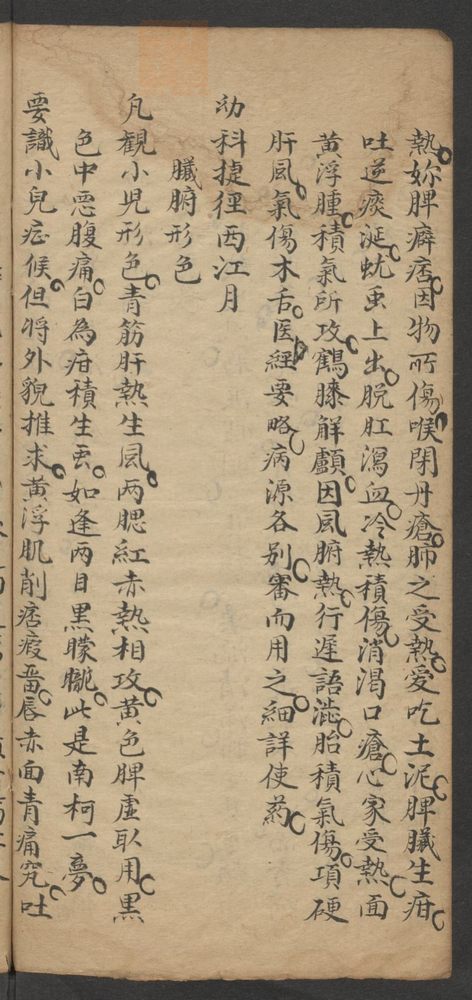 熱妳脾癖痞因物所傷喉閉丹瘡肺之受熱愛吃土泥脾臟生疳
吐逆痰涎蚘虫上出脫肛瀉血冷熱積傷消渴口瘡心家受熱面
黃浮腫積氣所攻鶴膝解顱因風腑熱行遲語澁胎積氣傷項硬
肝風氣傷木舌医經要略病源各别審而用之細詳使药
幼科捷徑西江月
臟腑形色
凡觀小児形色青筋肝熱生風两腮紅赤熱相攻黃色脾虛取用黑
色中惡腹痛白為疳積生虫如逢两目黑朦朧此是南柯一夢
要識小兒症候但將外貌推求黃浮肌削痞瘕畨唇赤面青痛究吐